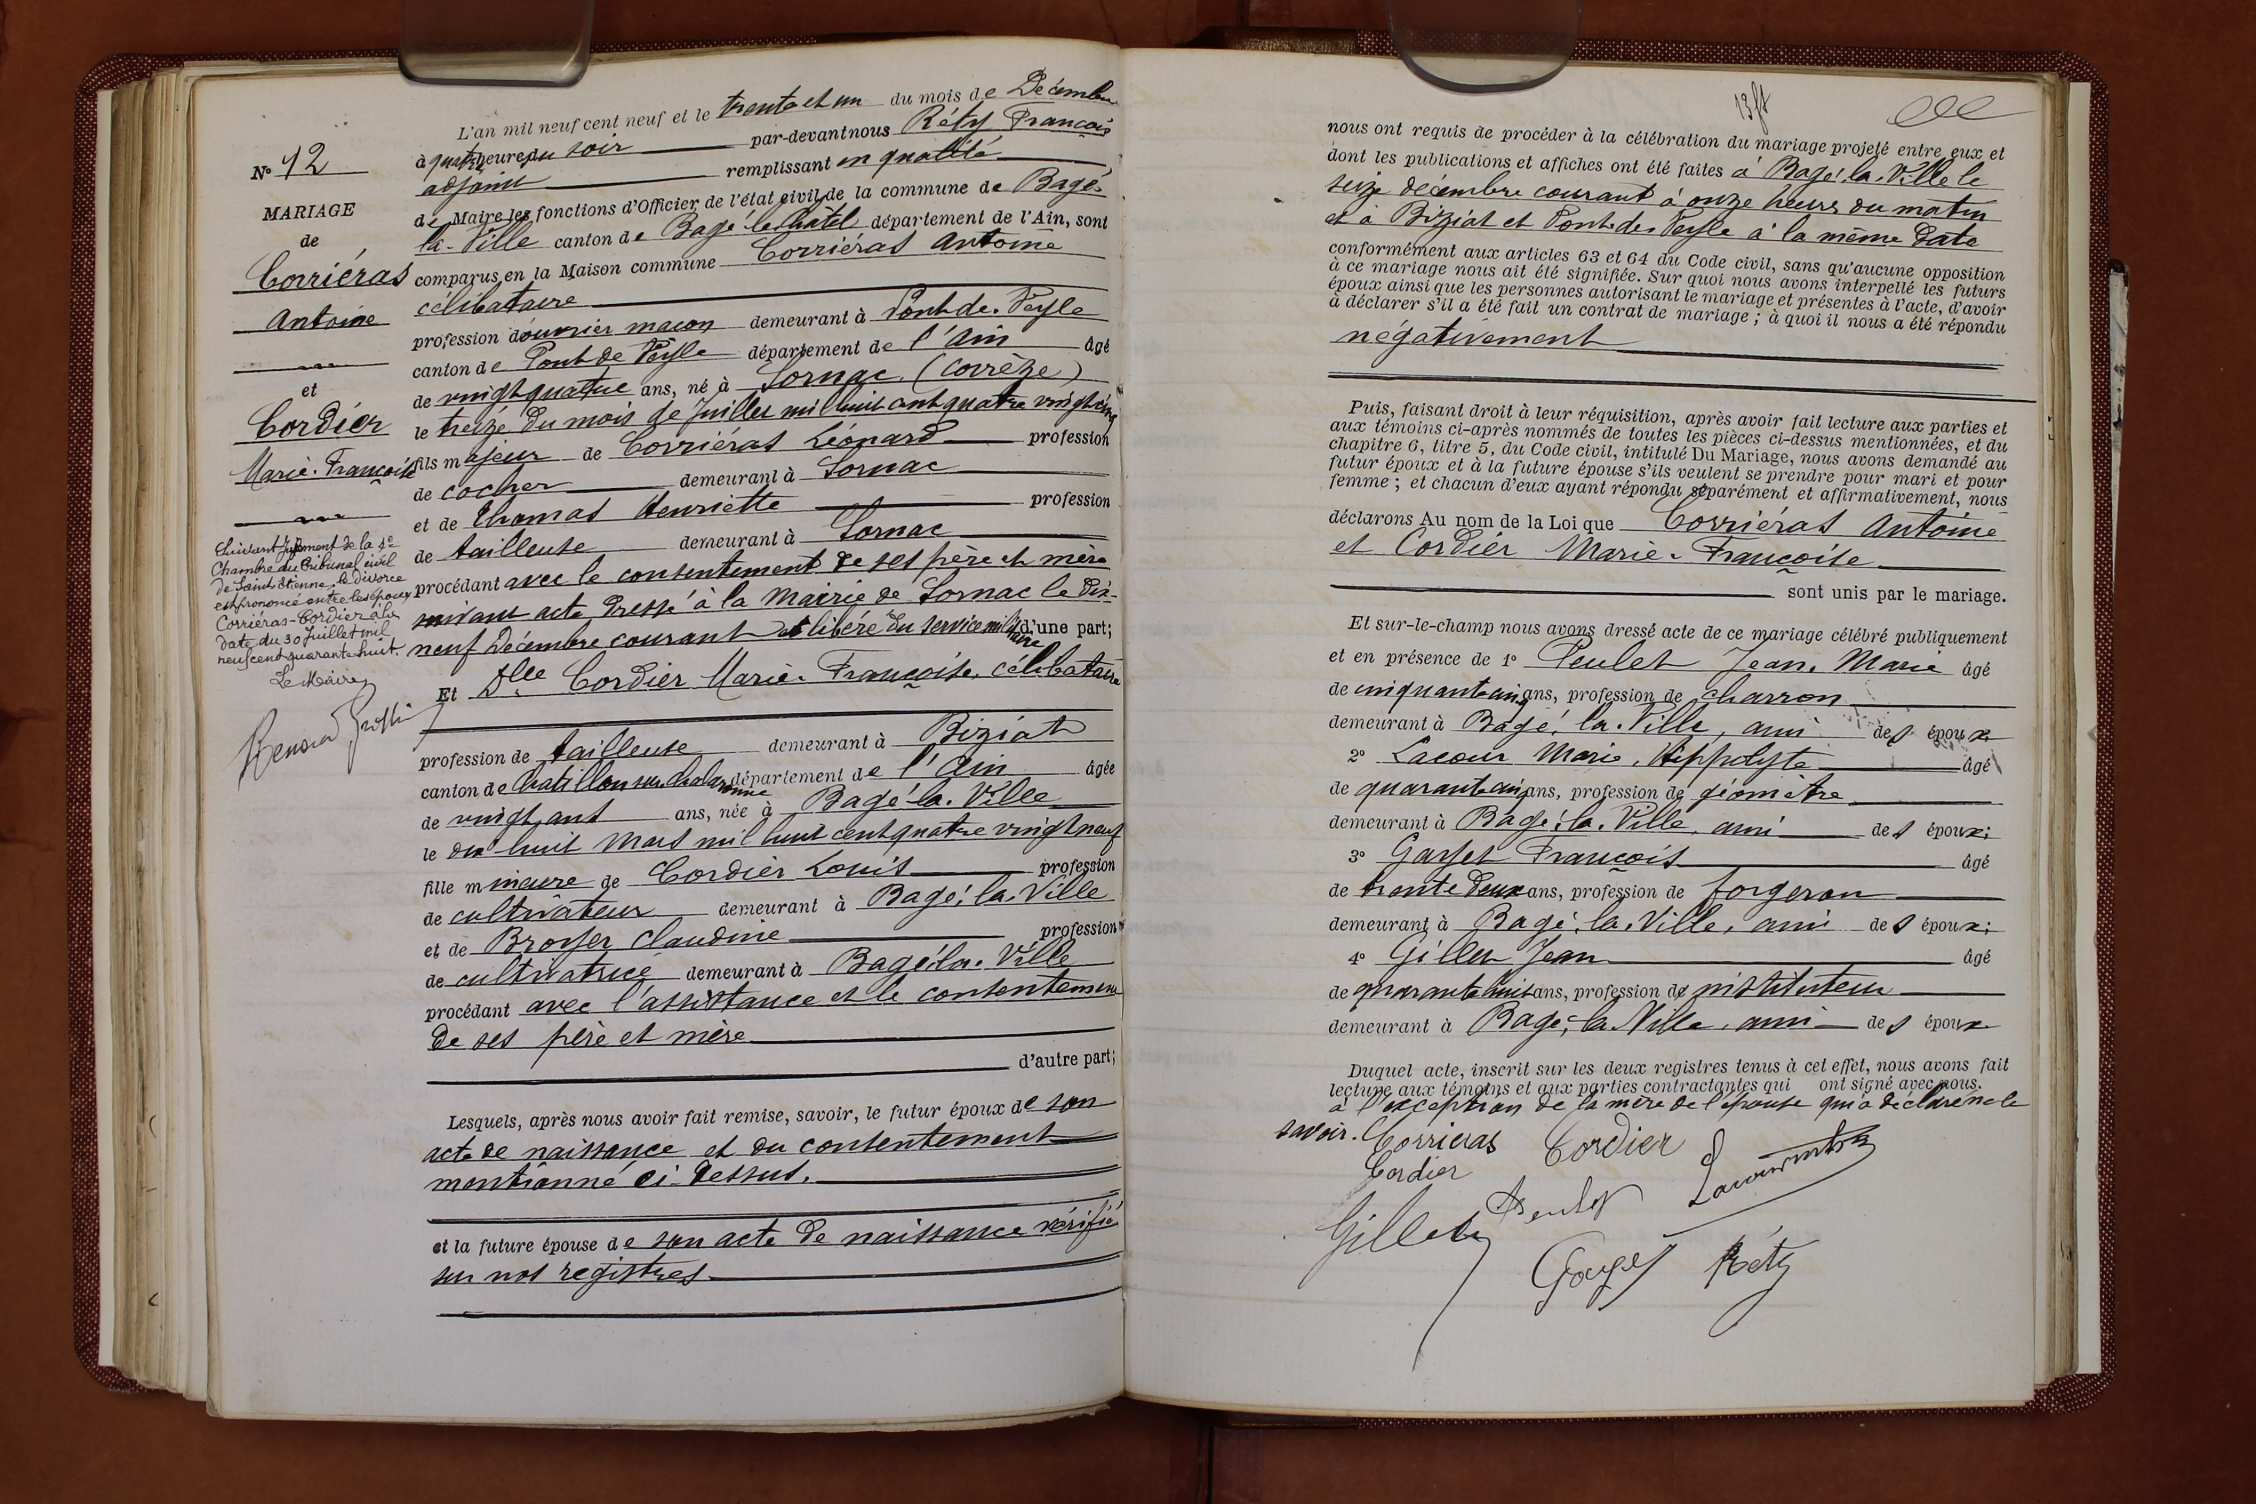 N° 12
MARIAGE
de
Corriéras
Antoine
et
Cordier
Marie-Françoise
Suivant jugement de la 1e
Chambre du Tribunal civil
de Saint-Etienne, le divorce
est prononcé entre les époux
Corriéras-Cordier à la
date du 30 Juillet mil
neuf cent quarante huit.
Le Maire,
L'an mil neuf cent neuf et le trente et un du mois de Décembre
à quatre heure du soir par-devant nous Réty François
adjoint remplissant en qualité
de Maire les fonctions d'Officier de l'état civil de la commune de Bagé-
la-Ville canton de Bagé-le-Châtel département de l'Ain, sont
comparus en la Maison commune Corriéras Antoine
célibataire
profession d'ouvrier maçon demeurant à Pont-de-Veyle
canton de Pont de Veyle département de l'Ain âgé
de vingt quatre ans, né à Sornac (Corrèze)
le treize du mois de Juillet mil huit cent quatre vingt cinq
fils majeur de Corriéras Léonard profession
de cocher demeurant à Sornac
et de Thomas Henriette profession
de tailleuse demeurant à Sornac
procédant avec le consentement de ses père et mère
suivant acte dressé à la Mairie de Sornac le dix-
neuf Décembre courant et libéré du service militaire d'une part;
Et Dlle Cordier Marie-Françoise, célibataire
profession de tailleuse demeurant à Biziat
canton de Chatillon sur Chalaronne département de l'Ain âgée
de vingt ans ans, née à Bagé-la-Ville
le dix huit Mars mil huit cent quatre vingt neuf
fille mineure de Cordier Louis profession
de cultivateur demeurant à Bagé-la-Ville
et de Broyer Claudine profession
de cultivatrice demeurant à Bagé-la-Ville
procédant avec l'assistance et le consentement
de ses père et mère
d'autre part;
Lesquels, après nous avoir fait remise, savoir, le futur époux de son
acte de naissance et du consentement
mentionné ci-dessus.
et la future épouse de son acte de naissance vérifié
sur nos registres
nous ont requis de procéder à la célébration du mariage projeté entre eux et
dont les publications et affiches ont été faites à Bagé-la-Ville le
seize décembre courant à onze heures du matin
et à Biziat et Pont-de-Veyle à la même date
conformément aux articles 63 et 64 du Code civil, sans qu'aucune opposition
à ce mariage nous ait été signifiée. Sur quoi nous avons interpellé les futurs
époux ainsi que les personnes autorisant le mariage et présentes à l'acte, d'avoir
à déclarer s'il a été fait un contrat de mariage; à quoi il nous a été répondu
négativement
Puis, faisant droit à leur réquisition, après avoir fait lecture aux parties et
aux témoins ci-après nommés de toutes les pièces ci-dessus mentionnées, et du
chapitre 6, titre 5, du Code civil, intitulé Du Mariage, nous avons demandé au
futur époux et à la future épouse s'ils veulent se prendre pour mari et pour
femme; et chacun d'eux ayant répondu séparément et affirmativement, nous
déclarons Au nom de la Loi que Corriéras Antoine
et Cordier Marie-Françoise
sont unis par le mariage.
Et sur-le-champ nous avons dressé acte de ce mariage célébré publiquement
et en présence de 1° Peulet Jean-Marie âgé
de cinquante cinq ans, profession de charron
demeurant à Bagé-la-Ville, ami des époux
2° Lacour Marie-Hippolyte âgé
de quarante cinq ans, profession de géomètre
demeurant à Bagé-la-Ville, ami des époux;
3° Gayet François âgé
de trente deux ans, profession de forgeron
demeurant à Bagé-la-Ville, ami des époux;
4° Gillet Jean âgé
de quarante huit ans, profession de instituteur
demeurant à Bagé-la-Ville, ami des époux
Duquel acte, inscrit sur les deux registres tenus à cet effet, nous avons fait
lecture aux témoins et aux parties contractantes qui ont signé avec nous.
à l'exception de la mère de l'épouse qui a déclaré ne le
savoir. Corrieras Cordier
Cordier
Gillet Peulet
Gayet Réty